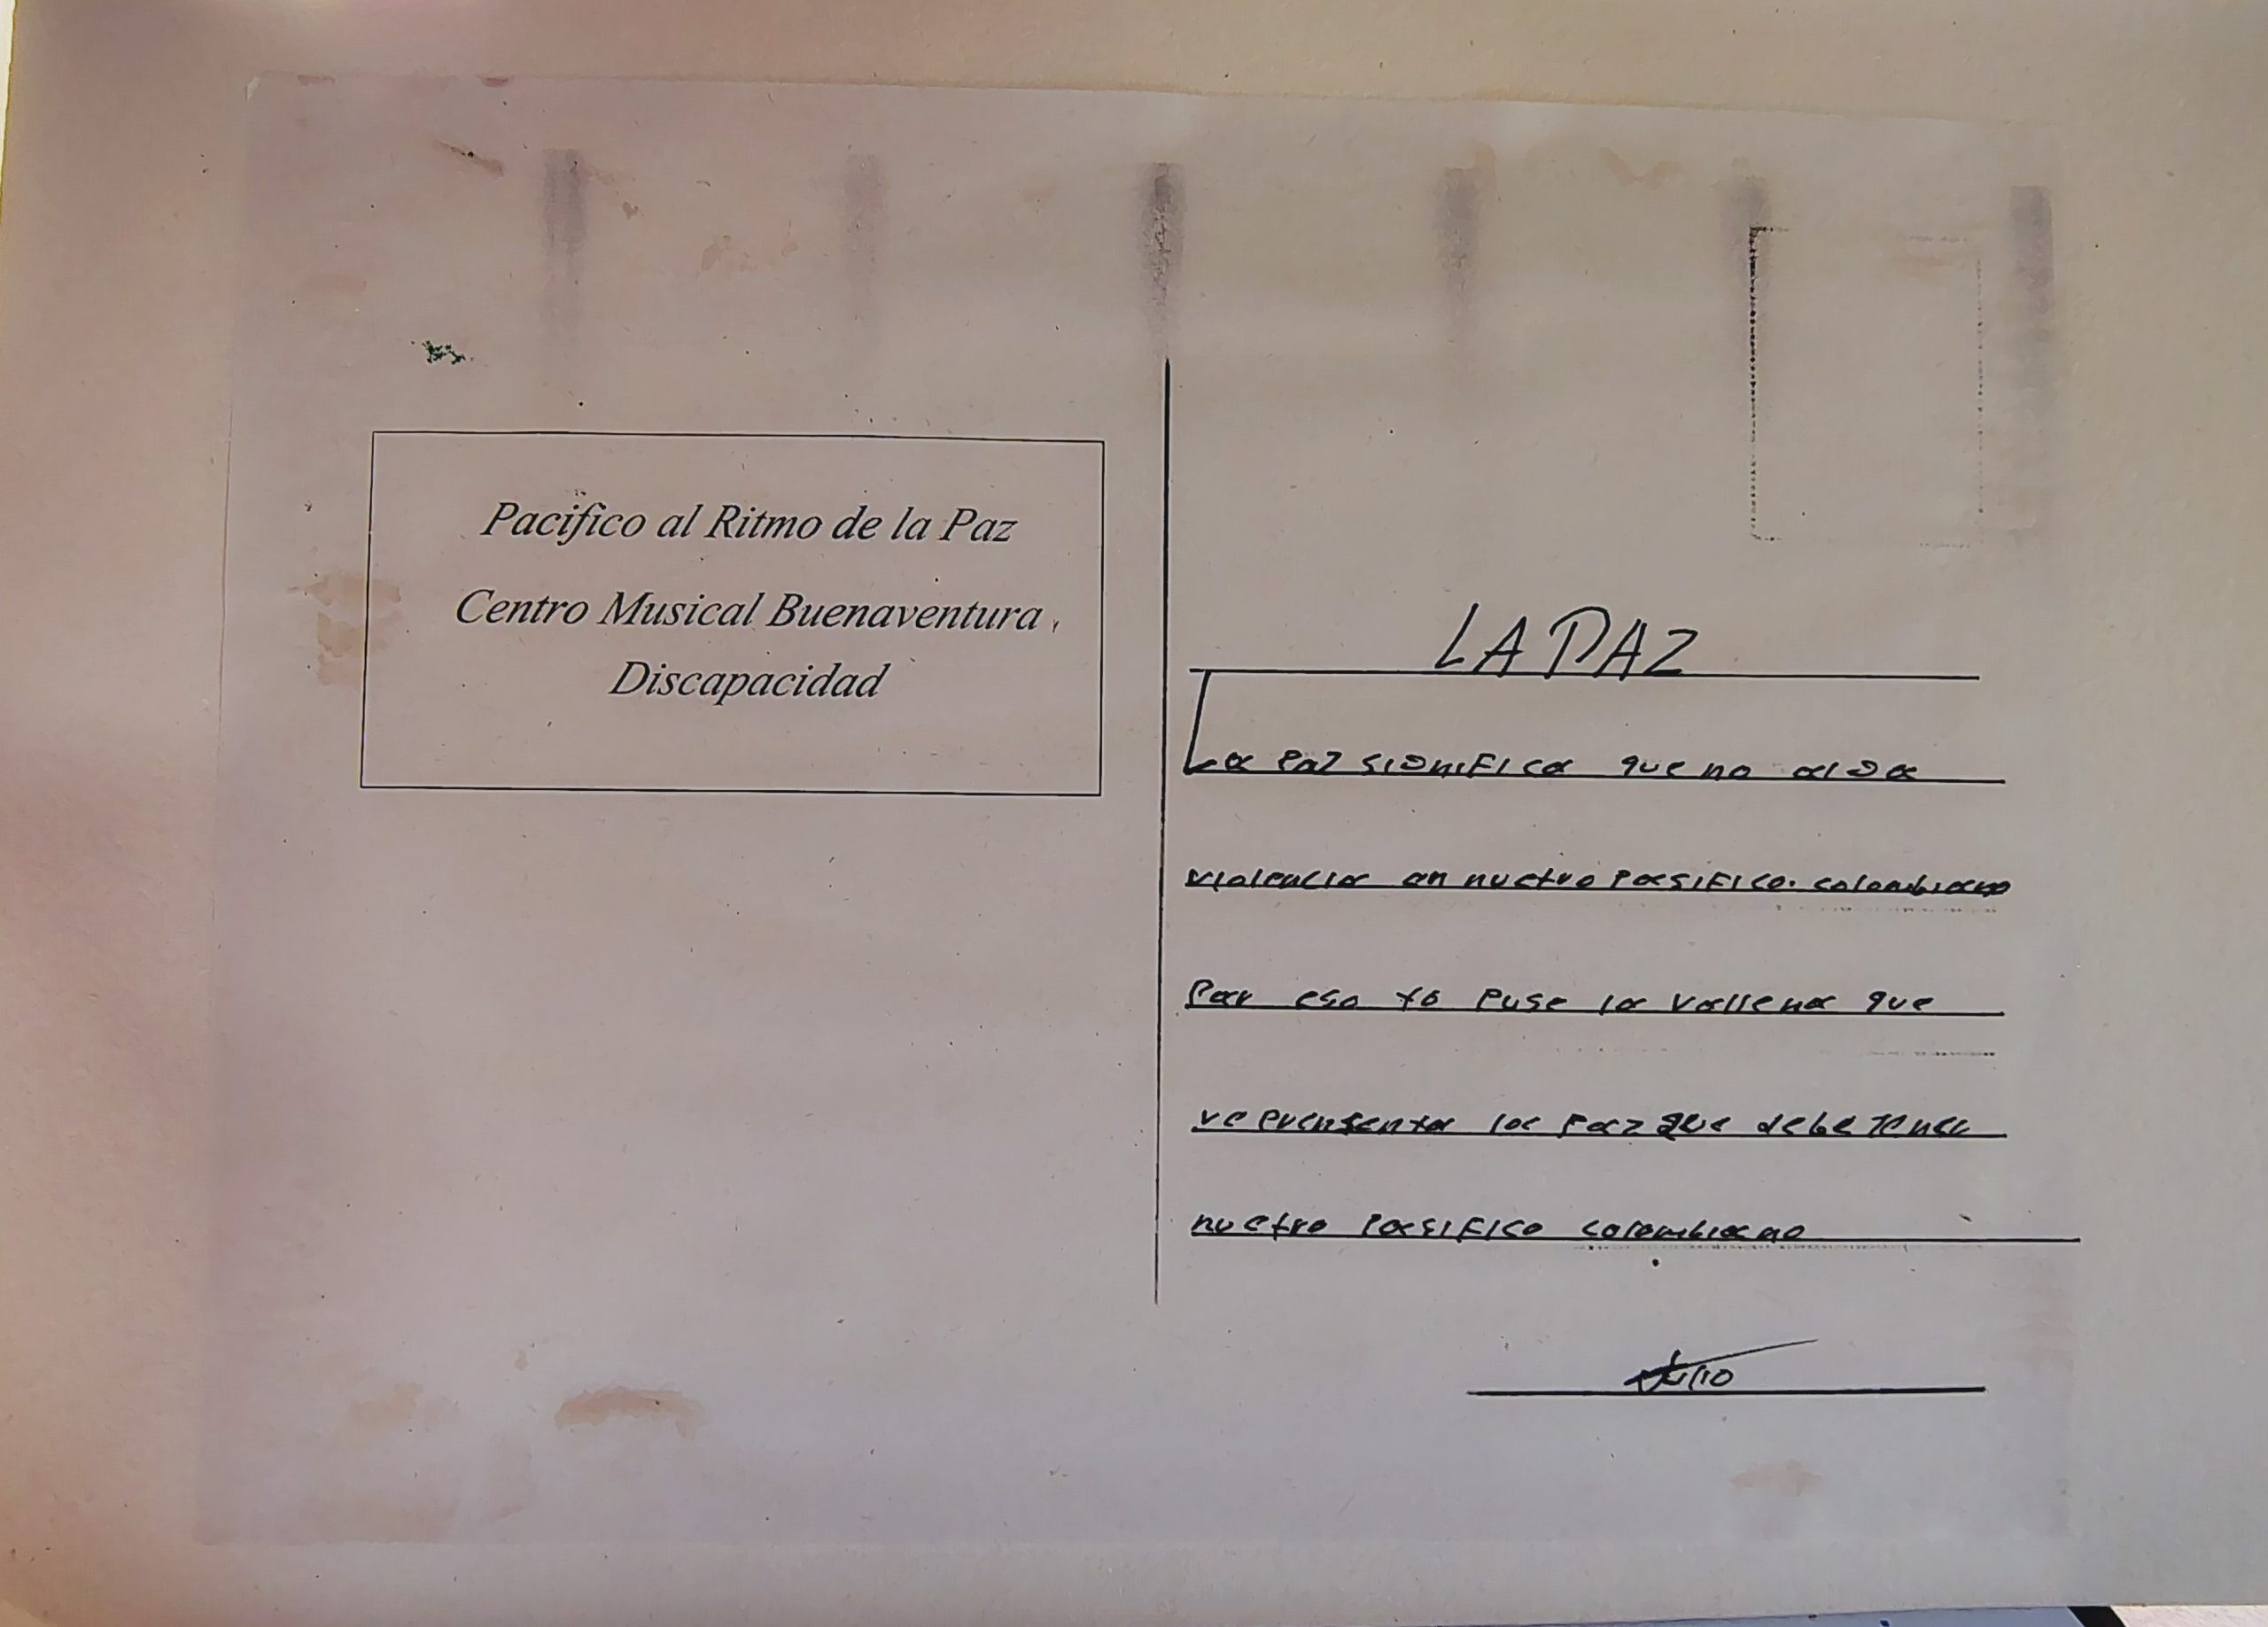 Pacifico al Ritmo de la Paz
Centro Musical Buenaventura
Discapacidad
LA PAZ
La paz significa que no aiga
violencia en nuetro pasifico. colombiano
Por eso yo puse la vallena que
reprensenta la paz que debe tener
nuetro pasifico colombiano